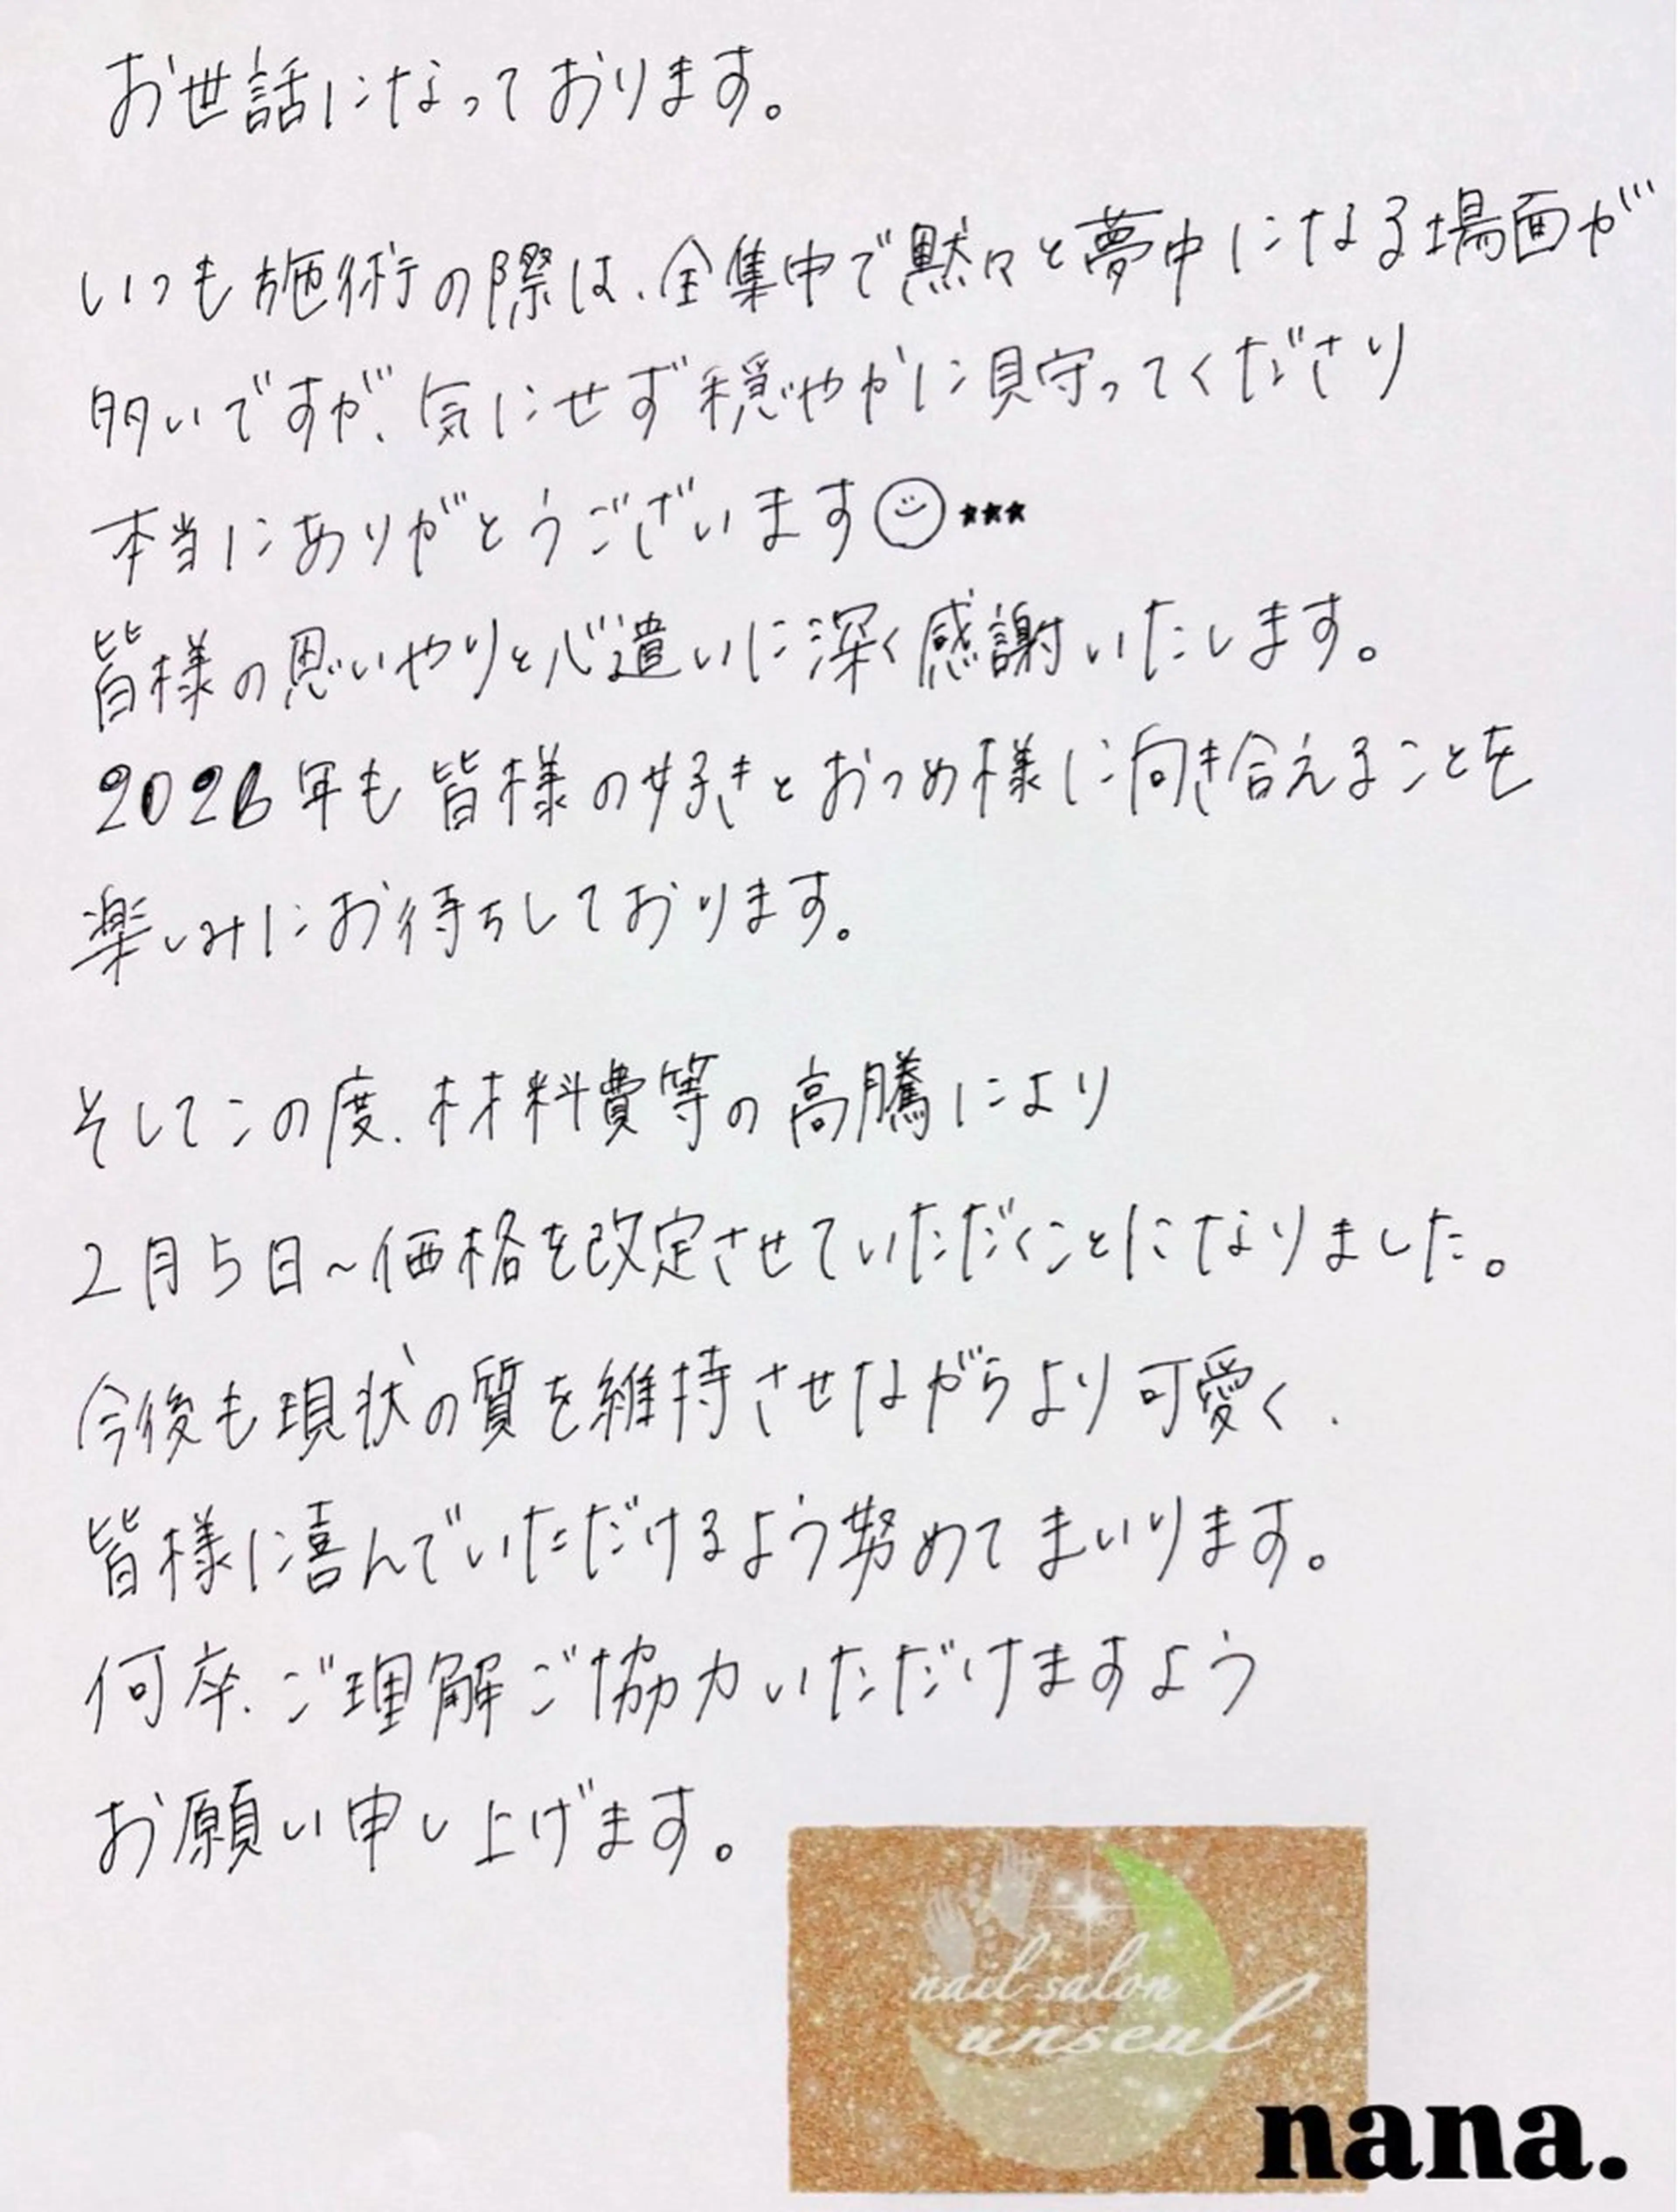 お世話になっております。
いつも施術の際は、全集中で黙々と夢中になる場面が
多いですが、気にせず穏やかに見守ってくださり
本当にありがとうございます☺★★★
皆様の思いやりと心遣いに深く感謝いたします。
2026年も皆様の好きとおつめ様に向き合えることを
楽しみにお待ちしております。
そしてこの度、材料費等の高騰により
2月5日～価格を改定させていただくことになりました。
今後も現状の質を維持させながらより可愛く、
皆様に喜んでいただけるよう努めてまいります。
何卒、ご理解ご協力いただけますよう
お願い申し上げます。
nail salon
unseul
nana.